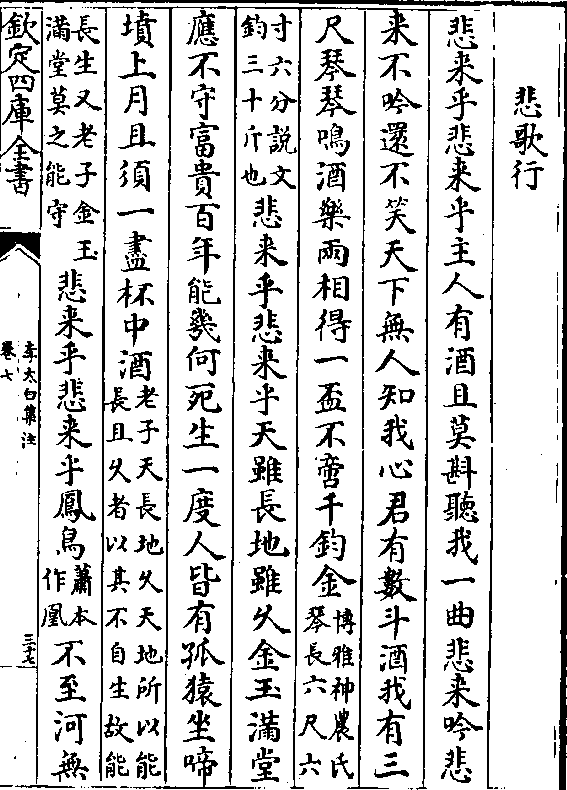 悲歌行
悲来乎悲来乎主人有酒且莫斟聽我一曲悲来吟悲
来不吟還不笑天下無人知我心君有數斗酒我有三
尺琴琴鳴酒樂兩相得一盃不啻千鈞金博雅神農氏琴長六尺六
寸六分說文鈞三十斤也悲来乎悲来乎天雖長地雖久金玉滿堂
應不守富貴百年能幾何死生一度人皆有孤猿坐啼
墳上月且須一盡杯中酒老子天長地久天地所以能長且久者以其不自生故能
長生又老子金玉滿堂莫之能守悲来乎悲来乎鳳鳥蕭本作凰不至河無
欽定四庫全書
李太白集注
卷七
三十七